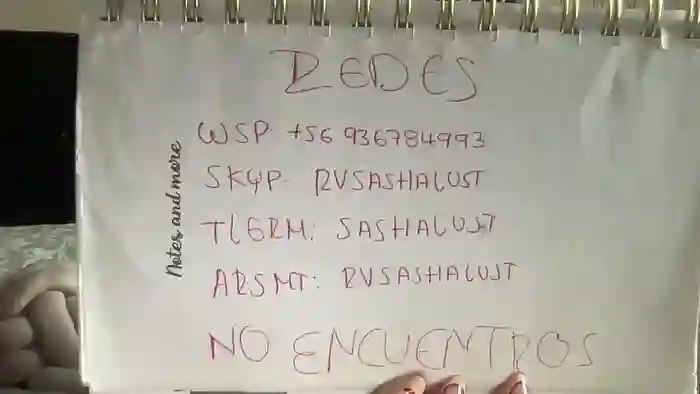 REDES
WSP +56 936784993
SKYP- RVSASHALUST
TLGRM: SASHALUST
ARSMT: RVSASHALUST
NO ENCUENTROS
Notes and more